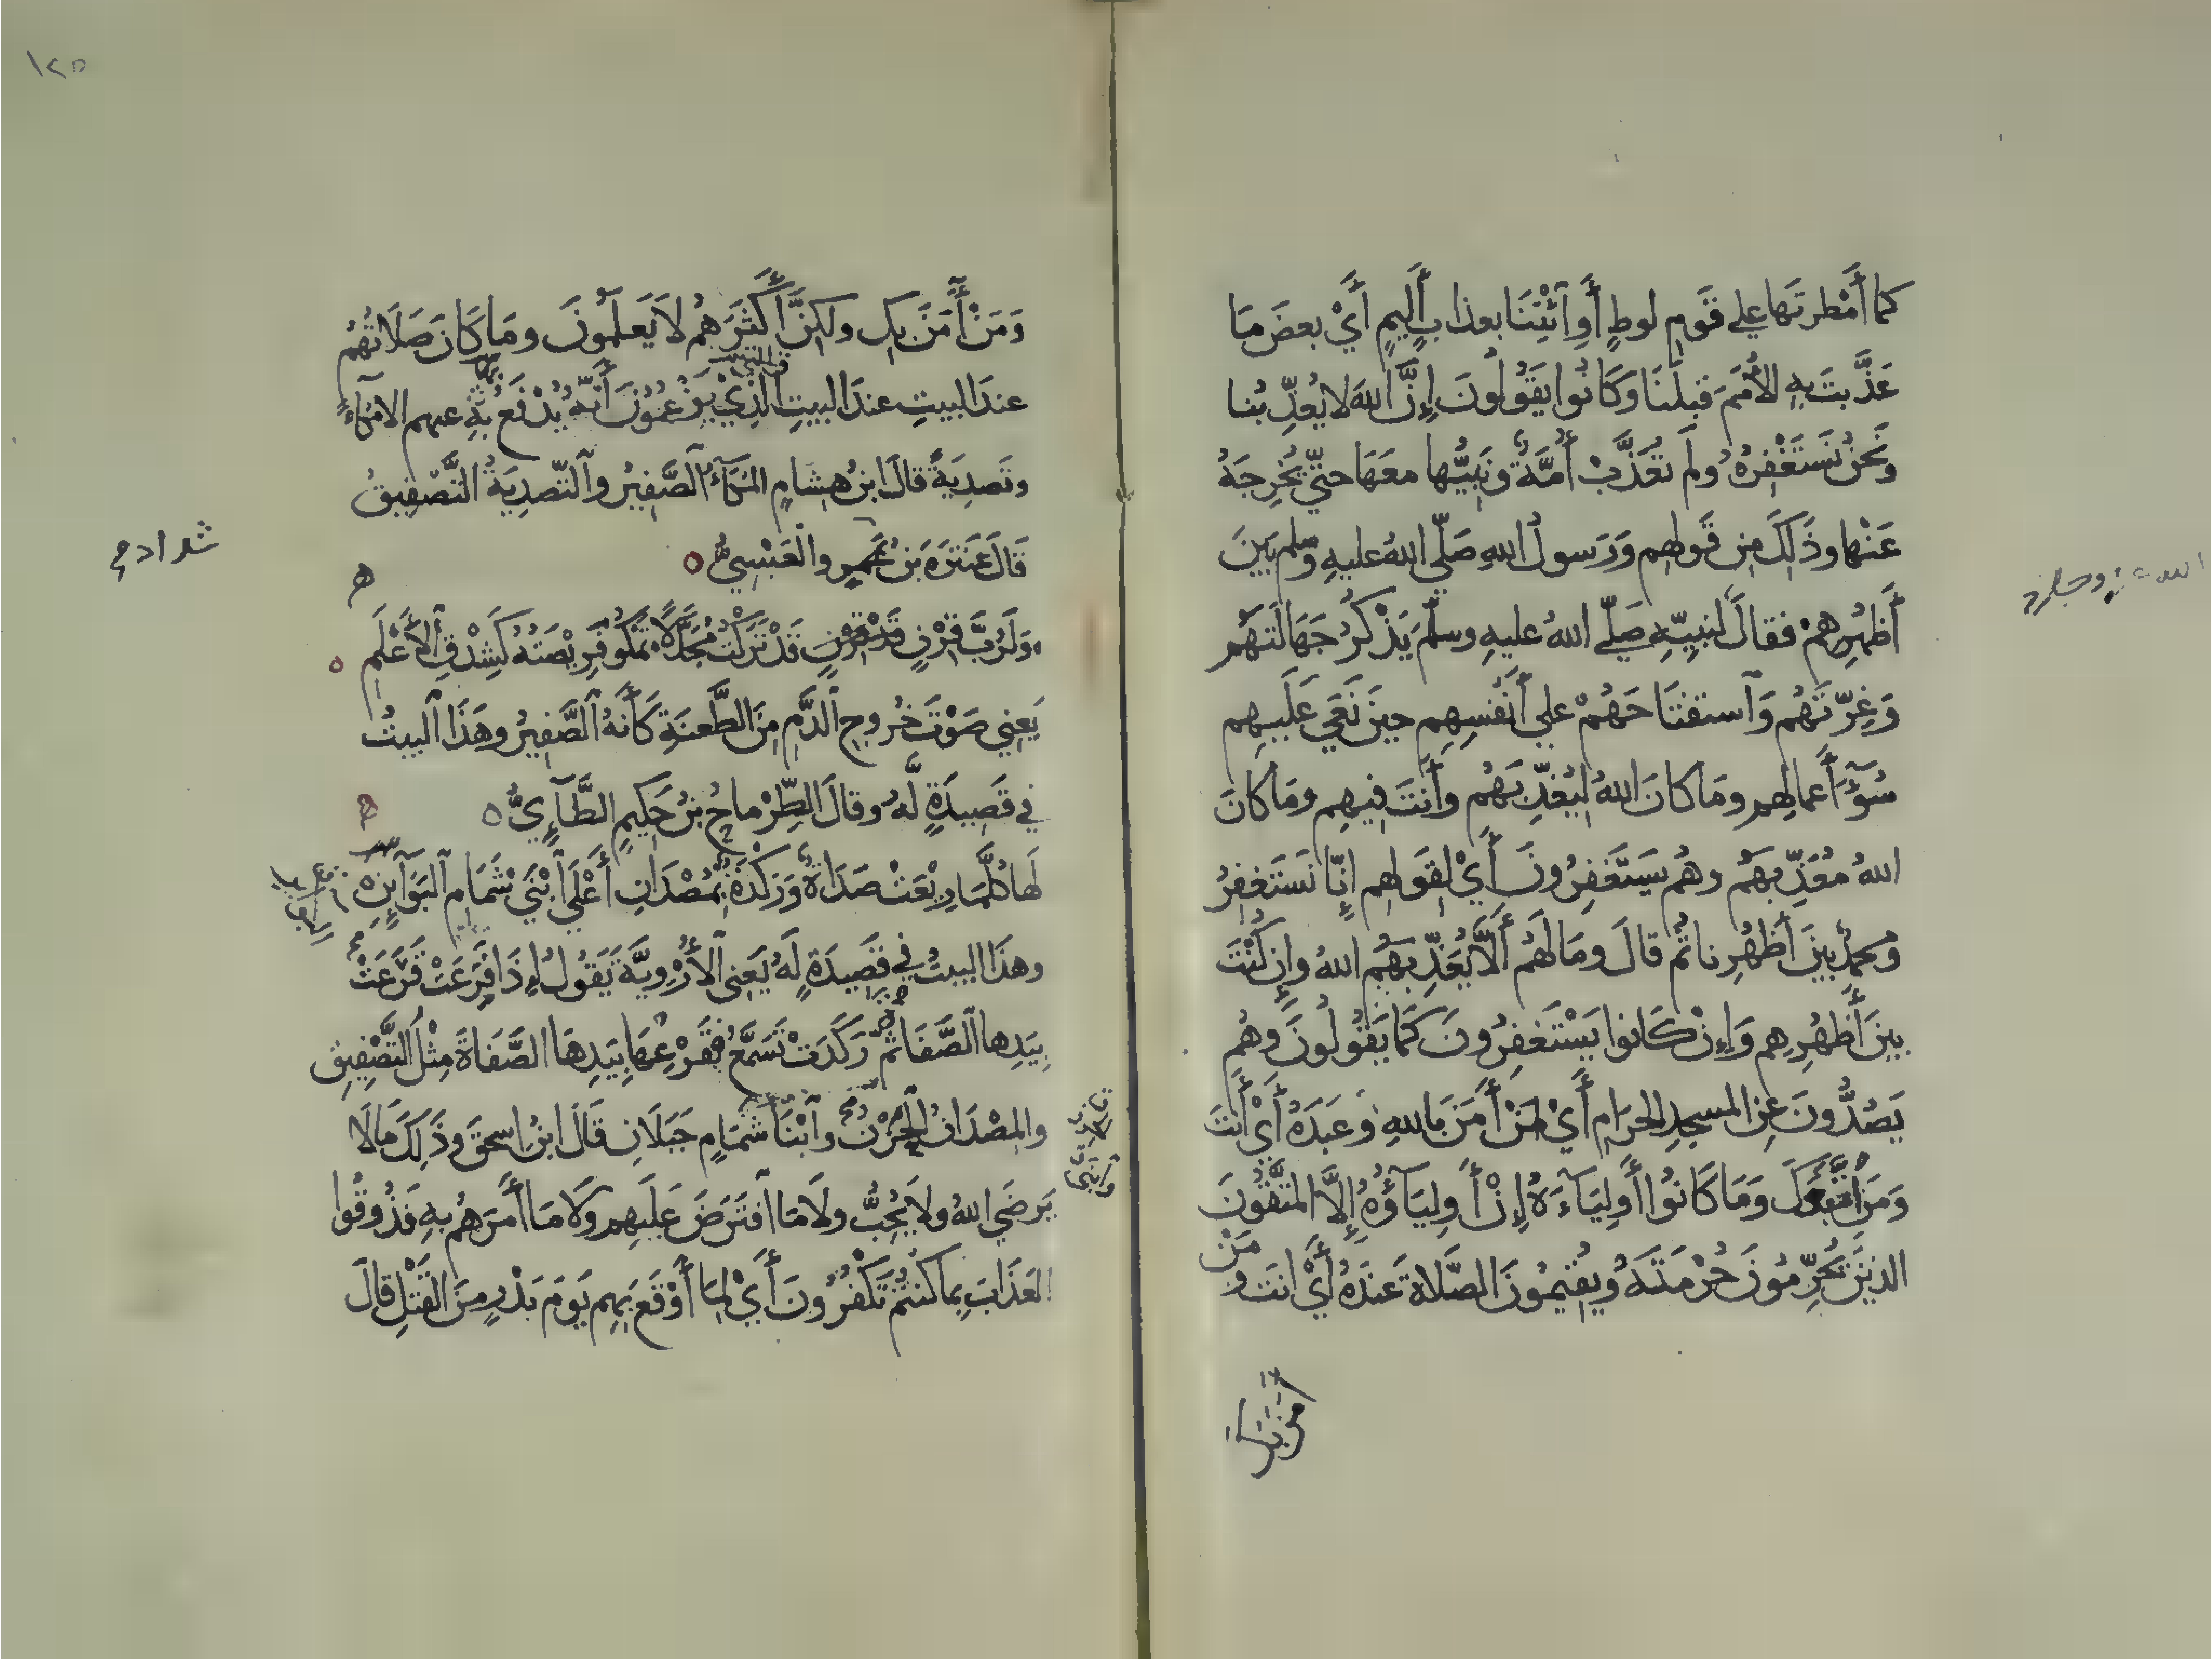 كما أَمْطرتَها على قَوم لوطٍ أَوِ ٱئْتِنَا بعذابٍ أَليمٍ أَيْ بعضَ مَا
عَذَّبتَ بِهِ الأُمَمَ قبلَنَا وَكَانُوا يَقُولُونَ إِنَّ اللهَ لا يُعذِّبُنا
ونَحنُ نَستَغْفِرُهُ ولَم تُعَذَّبْ أُمَّةٌ ونَبِيُّها معَهَا حتّى يُخْرِجَهُ
عَنْها وذَلِكَ مِن قَولهِم وَرَسولُ اللهِ صَلّى اللهُ عليهِ وسلم بَينَ
أَظهُرِهِمْ فقالَ لنبيِّهِ صَلّى اللهُ عليهِ وسلّمَ يَذْكُرُ جَهَالَتَهُم
وَغِرّتَهُم وَٱستفتَاحَهُمْ على أَنفُسِهِم حينَ نَعَى عَلَيهِم
سُوٓءَ أَعمالِهِم ومَا كانَ اللهُ ليُعَذِّبَهُم وأَنتَ فيهِم ومَا كانَ
اللهُ مُعَذِّبَهُم وهُم يَستَغفِرُونَ أَيْ لِقَولِهِم إِنّا نَستَغفِرُ
ومُحمدٌ بينَ أَظهُرِنا ثم قالَ ومَا لَهُم أَلَّا يُعَذِّبَهُم اللهُ وإِن كُنْتَ
بينَ أَظهُرِهِم وَإِنْ كَانوا يَسْتَغفِرُونَ كَمَا يَقُولُونَ وهُم
يَصُدُّونَ عنِ المسجدِ الحرَامِ أَيْ مَنْ أَمَنَ بِاللهِ وعَبَدَهُ أَيْ أَنتَ
وَمَنْ اتَّبَعَكَ وَمَا كَانُوا أَولِيَآءَهُ إِنْ أَولِيَآؤُهُ إِلَّا المتَّقُونَ
الذينَ يُحَرِّمُونَ حُرْمَتَهُ ويُقيمُونَ الصَّلاةَ عندَهُ أَيْ انتَ و
مَنْ
١٢٥
وَمَنْ أَمَنَ بِكَ ولكِنَّ أَكْثَرَهُم لَا يَعلَمُونَ ومَا كَانَ صَلَاتُهُم
عندَ البيتِ عندَ البيتِ الَّذِي يَزْعُمُونَ أَنَّهُ يُدْفَعُ بِهِ عنهم الا مُكَآءً
وتَصدِيَةً قالَ ابنُ هِشَامٍ المُكَآءُ ٱلصَّفِيرُ وٱلتّصدِيَةُ التَّصْفِيقُ
قَالَ عَنتَرَةَ بَنُ عَمرٍو الْعَبْسِيُّ
شداد
وَلَرُبَّ قِرْنٍ قَدْ تَرَكْتُ مُجَدَّلًا تَمكُو فَرِيصَتُهُ كَشِدْقِ ٱلأَعْلَمِ
يَعني صَوْتَ خُرُوجِ ٱلدَّمِ مِنَ الطَّعنَةِ كَأَنَّهُ ٱلصَّفِيرُ وهَذَا ٱلبيتُ
في قَصِيدَةٍ لَّهُ وقالَ الطِّرْماحُ بنُ حَكِيمٍ الطَّآئِيُّ
لَها كُلَّمَا رِيْعَتْ صَدَاةٌ وَرَكْدَةٌ بِمُصْدَانِ أَعْلَى ٱبْنَيْ شَمَامِ ٱلبَوَآئِنِ
وهذَا البيتُ في قَصِيدَةٍ لَهُ يَعني ٱلأُرْوِيَّةَ يَقُولُ إِذَا فَزِعَتْ قَرَعَتْ
بِيَدِها ٱلصَّفَاةَ ثُمَّ رَكَدَتْ تَسَمَّعُ قَرْعِهَا بِيَدِهَا الصَّفَاةَ مِثْلُ التَّصْفِيقِ
والمصْدَانُ الْحِرْزُ وٱبْنَا شَمَامٍ جَبَلَانِ قَالَ ابنُ اسحقَ وذَلِكَ مَا لَا
يَرضَى اللهُ ولا يُحِبُّ ولَا مَا ٱفتَرَضَ عَلَيهِم وَلَا مَا أَمَرَهُم بِهِ فَذُوقُوا
العَذَابَ بِما كُنتُم تَكْفُرُونَ أَيْ لِمَا أَوْقَعَ بِهِم يَومَ بَدْرٍ مِنَ القَتْلِ قالَ